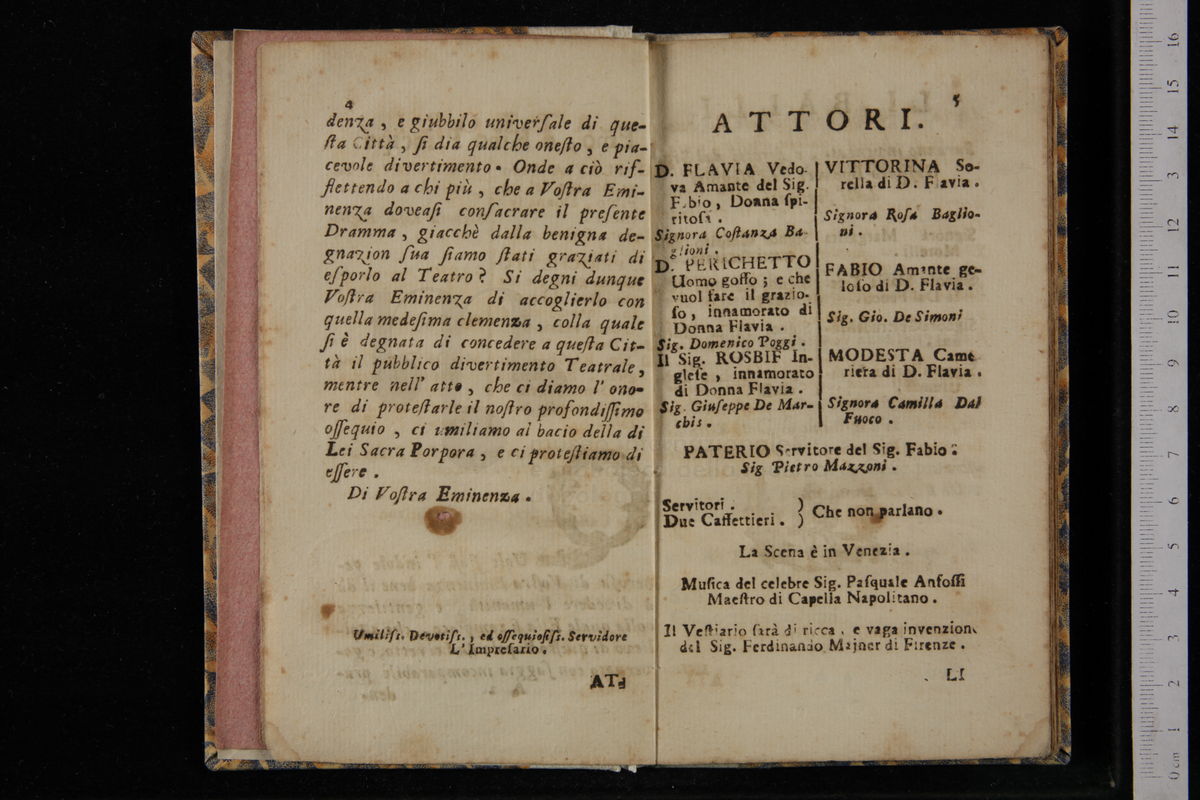 4
denza, e giubbilo univerſale di que-
ſta Città, ſi dia qualche oneſto, e pia-
cevole divertimento. Onde a ciò rif-
flettendo a chi più, che a Voſtra Emi-
nenza doveaſi conſacrare il preſente
Dramma, giacchè dalla benigna de-
gnazion ſua ſiamo ſtati graziati di
eſporlo al Teatro? Si degni dunque
Voſtra Eminenza di accoglierlo con
quella medeſima clemenza, colla quale
ſi è degnata di concedere a queſta Cit-
tà il pubblico divertimento Teatrale,
mentre nell' atto, che ci diamo l' ono-
re di proteſtarle il noſtro profondiſſimo
oſſequio, ci umiliamo al bacio della di
Lei Sacra Porpora, e ci proteſtiamo di
eſſere.
Di Voſtra Eminenza.
Umiliſs. Devotiſs., ed oſſequioſiſs. Servidore
L' Impreſario.
AT-
5
ATTORI.
D. FLAVIA Vedo-
va Amante del Sig.
Fabio, Donna ſpi-
ritoſa.
Signora Coſtanza Ba-
glioni.
D. PERICHETTO
Uomo goffo; e che
vuol fare il grazio-
ſo, innamorato di
Donna Flavia.
Sig. Domenico Poggi.
Il Sig. ROSBIF In-
gleſe, innamorato
di Donna Flavia.
Sig. Giuſeppe De Mar-
chis.
VITTORINA So-
rella di D. Flavia.
Signora Roſa Baglio-
ni.
FABIO Amante ge-
loſo di D. Flavia.
Sig. Gio. De Simoni
MODESTA Came
riera di D. Flavia.
Signora Camilla Dal
Fuoco.
PATERIO Servitore del Sig. Fabio.
Sig. Pietro Mazzoni.
Servitori. )
Due Caffettieri. ) Che non parlano.
La Scena è in Venezia.
Muſica del celebre Sig. Paſquale Anfoſſi
Maeſtro di Capella Napolitano.
Il Veſtiario ſarà di ricca, e vaga invenzione
del Sig. Ferdinando Majner di Firenze.
LI
0 cm 1 2 3 4 5 6 7 8 9 10 11 12 13 14 15 16